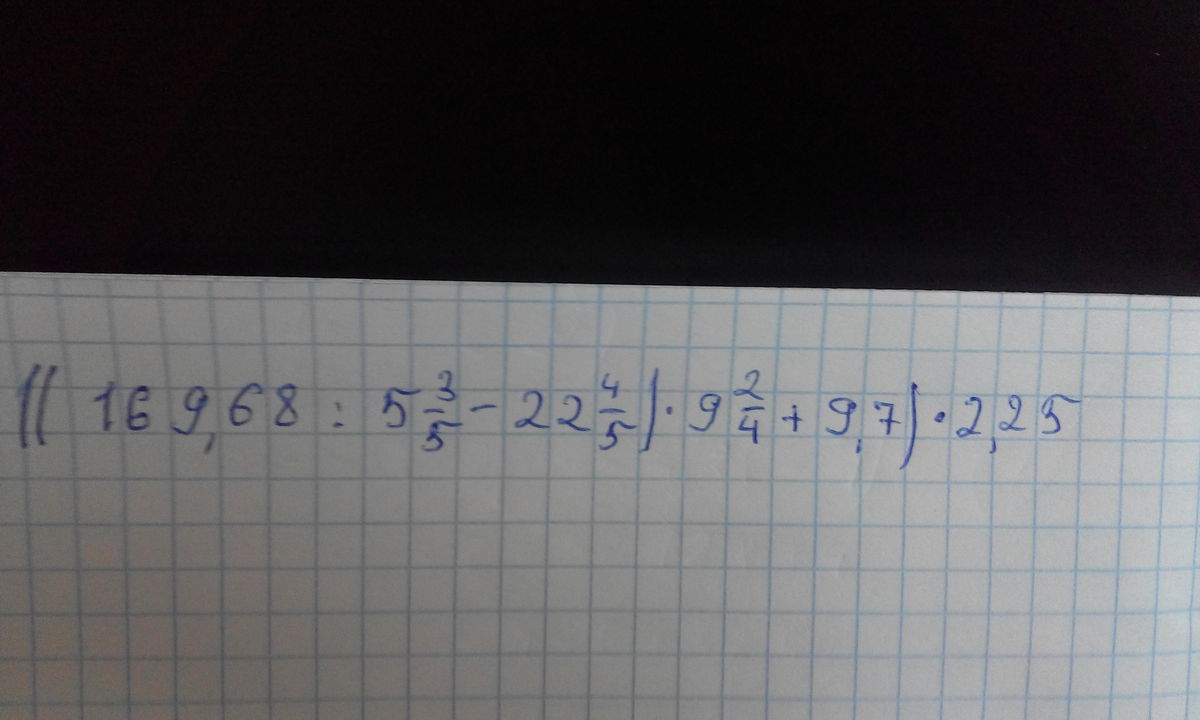 (( 169,68 : 5 3/5 - 22 4/5) · 9 2/4 + 9,7) · 2,25